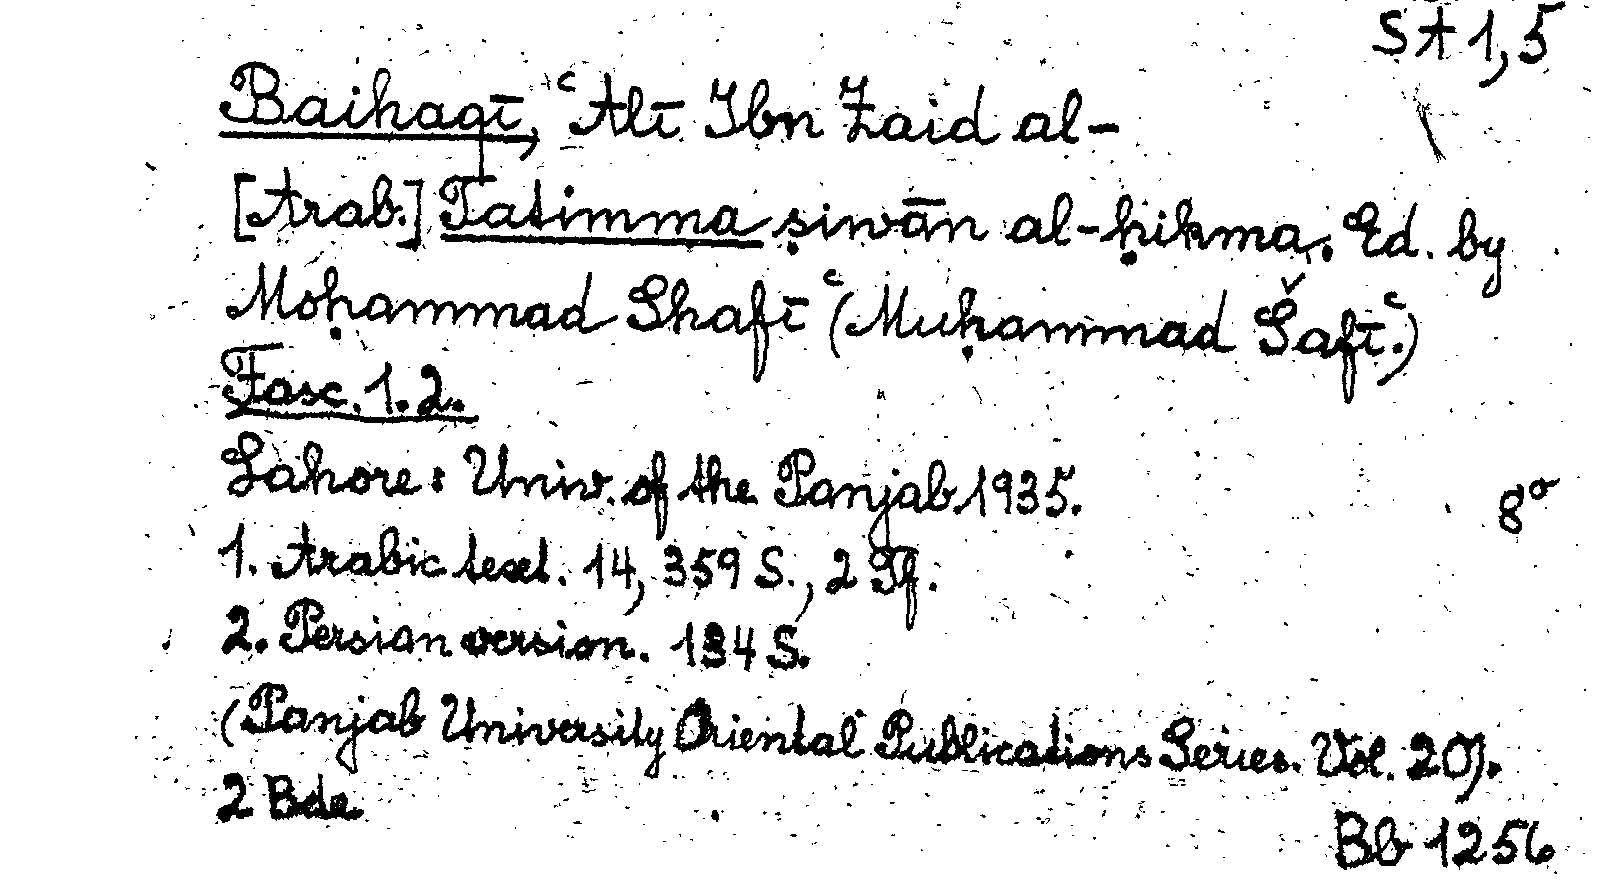 St 1,5
Baihaqī, ʿAlī Ibn Zaid al-
[Arab.] Tatimma ṣiwān al-ḥikma. Ed. by
Moḥammad Shafīʿ (Muḥammad Šafīʿ.)
Fasc. 1.2.
Lahore: Univ. of the Panjab 1935. 8°
1. Arabic text. 14, 359 S., 2 Tf.
2. Persian version. 134 S.
(Panjab University Oriental Publications Series. Vol. 20).
2 Bde
Bb 1256